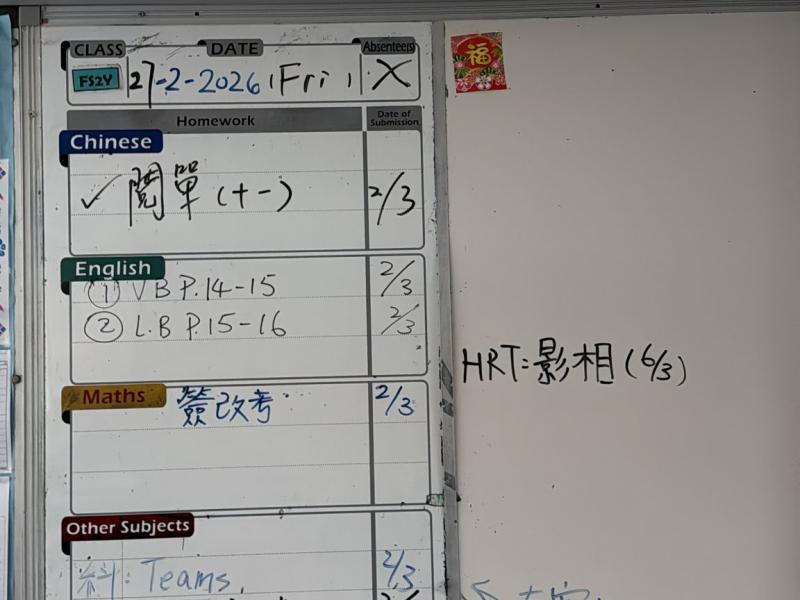 CLASS DATE Absentees
FS2Y 27-2-2026 (Fri) X
Homework Date of Submission
Chinese
✓ 閱單(十一) 2/3
English
① VB P.14-15 2/3
② L.B P.15-16 2/3
Maths
簽改考 2/3
Other Subjects
Teams. 2/3
福
HRT:影相(6/3)